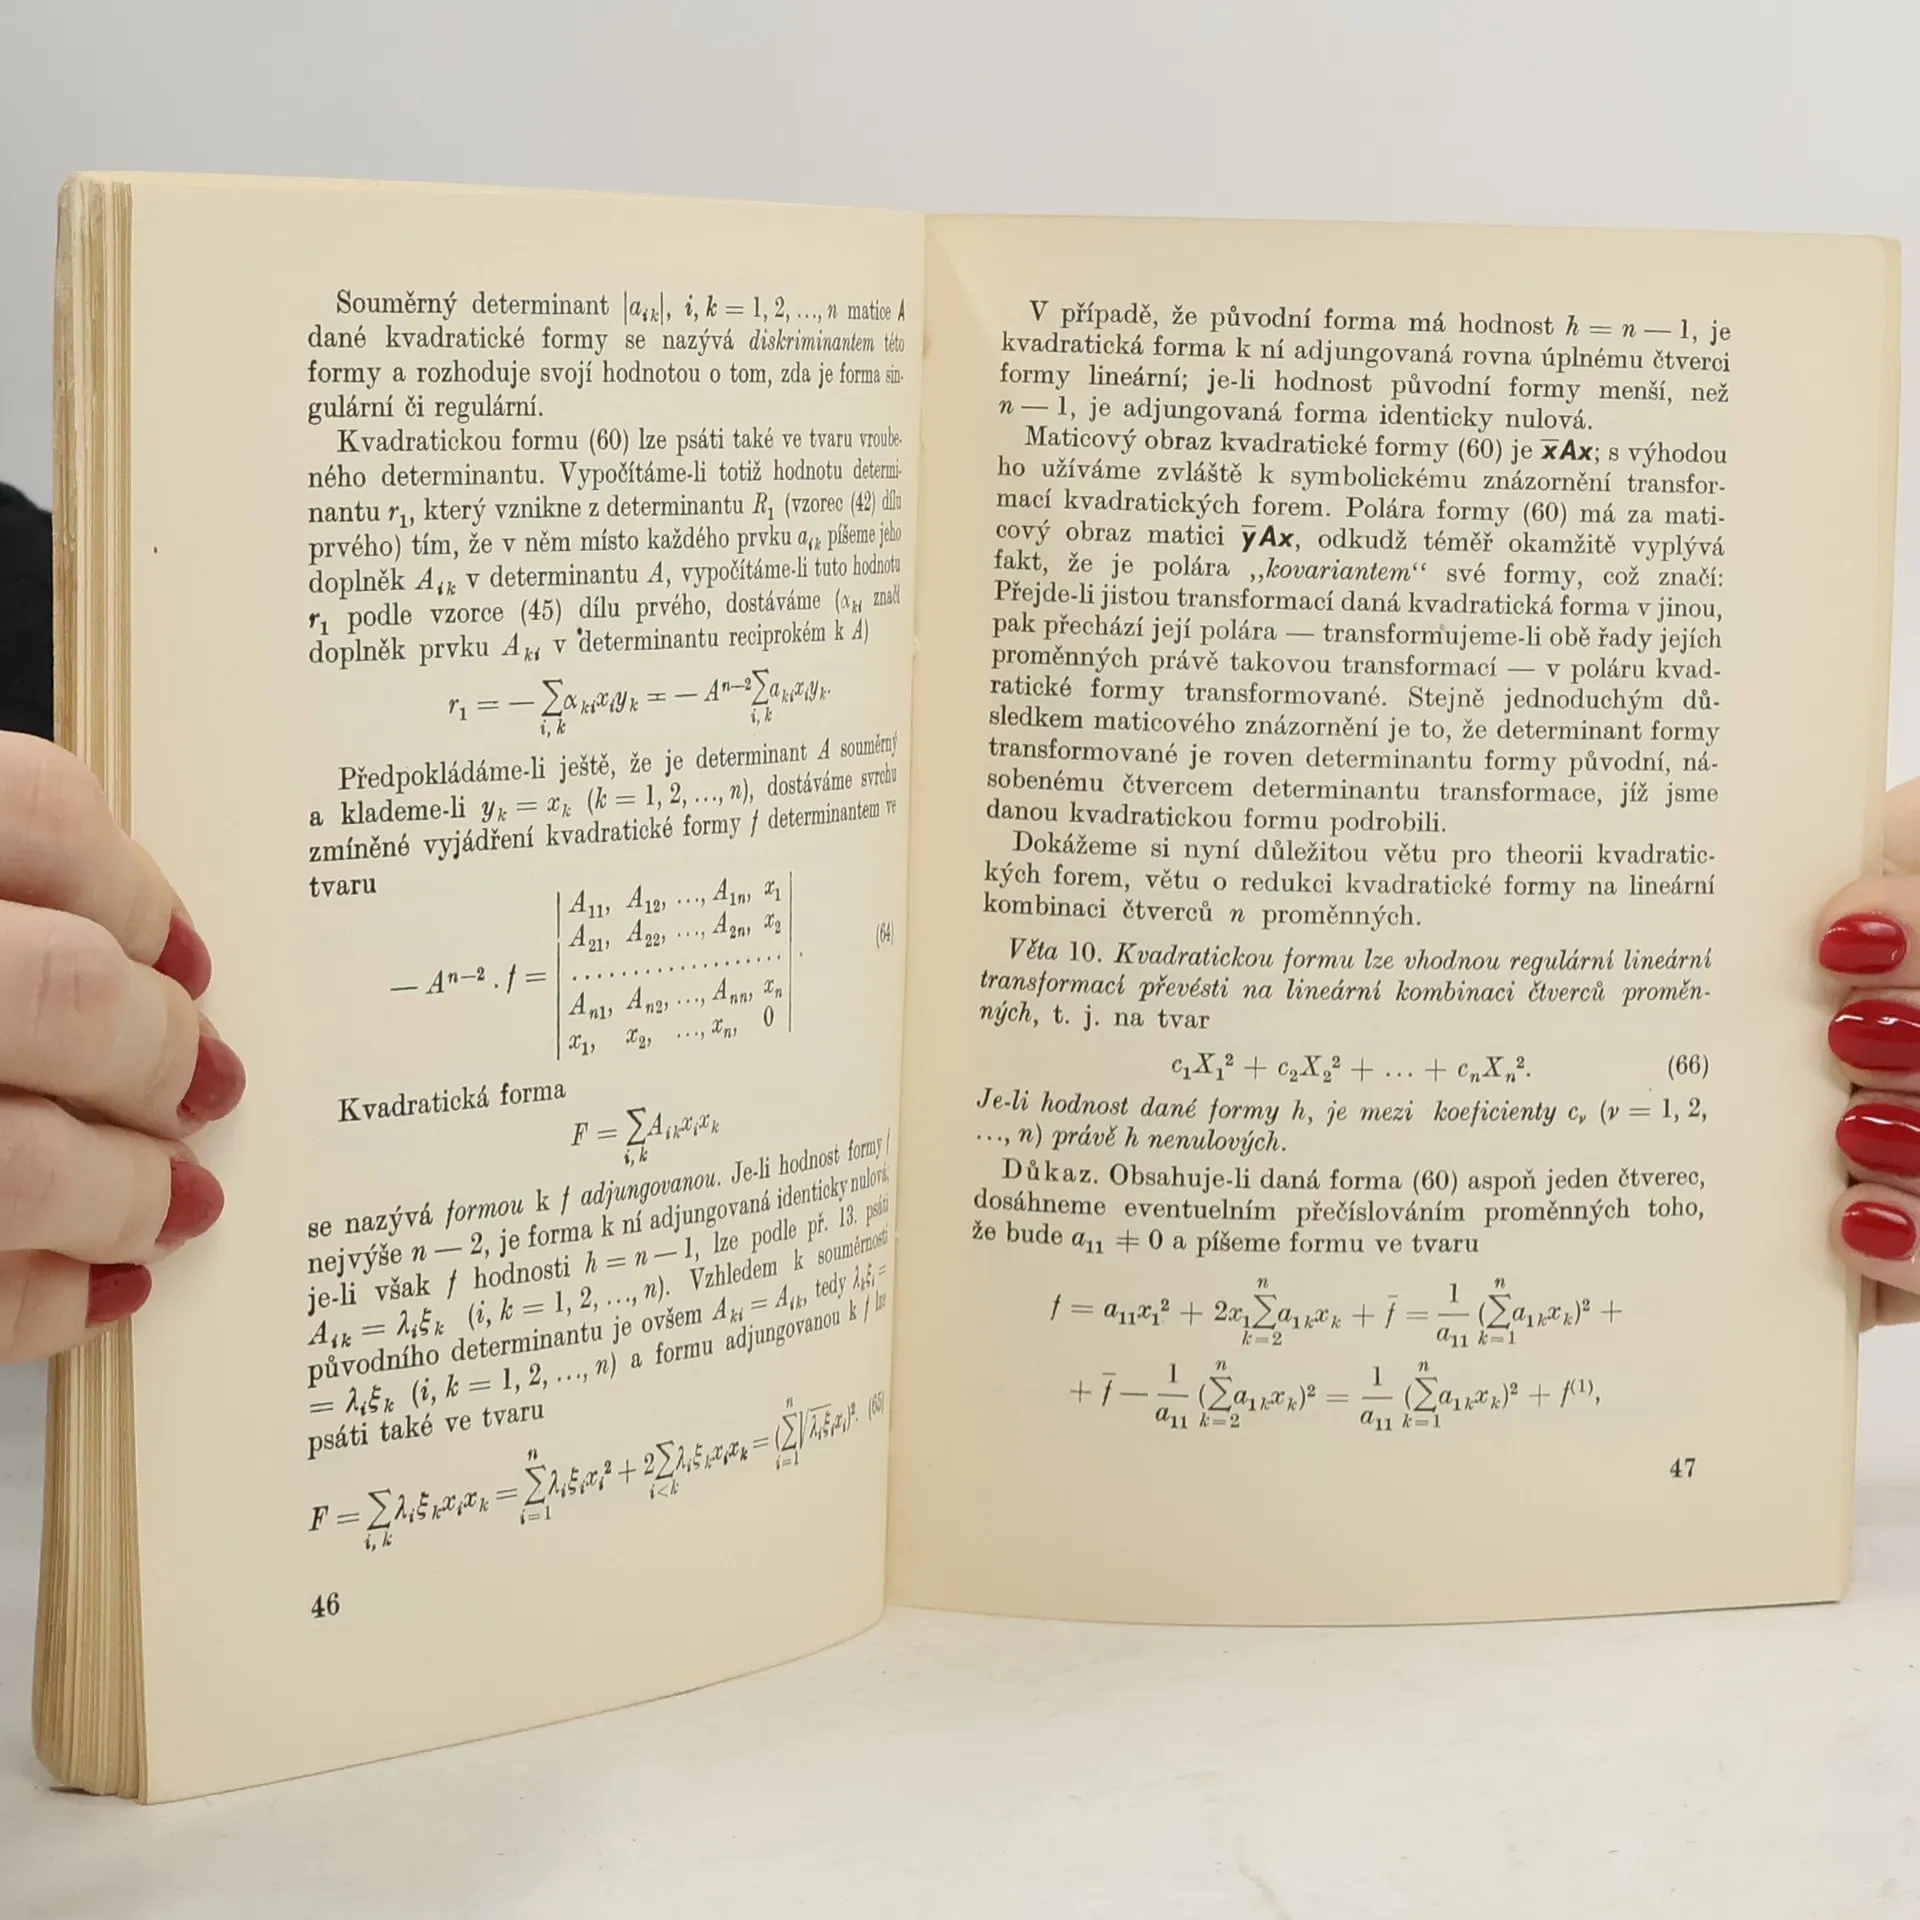 Souměrný determinant |aᵢₖ|, i, k = 1, 2, ..., n matice A
dané kvadratické formy se nazývá diskriminantem této
formy a rozhoduje svojí hodnotou o tom, zda je forma sin-
gulární či regulární.
Kvadratickou formu (60) lze psáti také ve tvaru vroube-
ného determinantu. Vypočítáme-li totiž hodnotu determi-
nantu r₁, který vznikne z determinantu R₁ (vzorec (42) dílu
prvého) tím, že v něm místo každého prvku aᵢₖ píšeme jeho
doplněk Aᵢₖ v determinantu A, vypočítáme-li tuto hodnotu
r₁ podle vzorce (45) dílu prvého, dostáváme (αₖᵢ značí
doplněk prvku Aₖᵢ v determinantu reciprokém k A)
r₁ = — ∑αₖᵢxᵢyₖ = — Aⁿ⁻²∑aₖᵢxᵢyₖ.
i, k i, k
Předpokládáme-li ještě, že je determinant A souměrný
a klademe-li yₖ = xₖ (k = 1, 2, ..., n), dostáváme svrchu
zmíněné vyjádření kvadratické formy f determinantem ve
tvaru
A₁₁, A₁₂, ..., A₁ₙ, x₁
A₂₁, A₂₂, ..., A₂ₙ, x₂
— Aⁿ⁻² . f = .................... . (64)
Aₙ₁, Aₙ₂, ..., Aₙₙ, xₙ
x₁, x₂, ..., xₙ, 0
Kvadratická forma
F = ∑Aᵢₖxᵢxₖ
i, k
se nazývá formou k f adjungovanou. Je-li hodnost formy f
nejvýše n — 2, je forma k ní adjungovaná identicky nulová;
je-li však f hodnosti h = n — 1, lze podle př. 13. psáti
Aᵢₖ = λᵢξₖ (i, k = 1, 2, ..., n). Vzhledem k souměrnosti
původního determinantu je ovšem Aₖᵢ = Aᵢₖ, tedy λₖξᵢ =
= λᵢξₖ (i, k = 1, 2, ..., n) a formu adjungovanou k f lze
psáti také ve tvaru
n n
F = ∑λᵢξₖxᵢxₖ = ∑λᵢξᵢxᵢ² + 2∑λᵢξₖxᵢxₖ = (∑√λᵢξᵢxᵢ)². (65)
i, k i=1 i<k i=1
46
V případě, že původní forma má hodnost h = n — 1, je
kvadratická forma k ní adjungovaná rovna úplnému čtverci
formy lineární; je-li hodnost původní formy menší, než
n — 1, je adjungovaná forma identicky nulová.
Maticový obraz kvadratické formy (60) je x̅Ax; s výhodou
ho užíváme zvláště k symbolickému znázornění transfor-
mací kvadratických forem. Polára formy (60) má za mati-
cový obraz matici y̅Ax, odkudž téměř okamžitě vyplývá
fakt, že je polára „kovariantem“ své formy, což značí:
Přejde-li jistou transformací daná kvadratická forma v jinou,
pak přechází její polára — transformujeme-li obě řady jejích
proměnných právě takovou transformací — v poláru kvad-
ratické formy transformované. Stejně jednoduchým dů-
sledkem maticového znázornění je to, že determinant formy
transformované je roven determinantu formy původní, ná-
sobenému čtvercem determinantu transformace, jíž jsme
danou kvadratickou formu podrobili.
Dokážeme si nyní důležitou větu pro theorii kvadratic-
kých forem, větu o redukci kvadratické formy na lineární
kombinaci čtverců n proměnných.
Věta 10. Kvadratickou formu lze vhodnou regulární lineární
transformací převésti na lineární kombinaci čtverců proměn-
ných, t. j. na tvar
c₁X₁² + c₂X₂² + ... + cₙXₙ². (66)
Je-li hodnost dané formy h, je mezi koeficienty cᵥ (ν = 1, 2,
..., n) právě h nenulových.
Důkaz. Obsahuje-li daná forma (60) aspoň jeden čtverec,
dosáhneme eventuelním přečíslováním proměnných toho,
že bude a₁₁ ≠ 0 a píšeme formu ve tvaru
n 1 n
f = a₁₁x₁² + 2x₁∑a₁ₖxₖ + f̅ = — (∑a₁ₖxₖ)² +
k=2 a₁₁ k=1
1 n 1 n
+ f̅ — — (∑a₁ₖxₖ)² = — (∑a₁ₖxₖ)² + f⁽¹⁾,
a₁₁ k=2 a₁₁ k=1
47